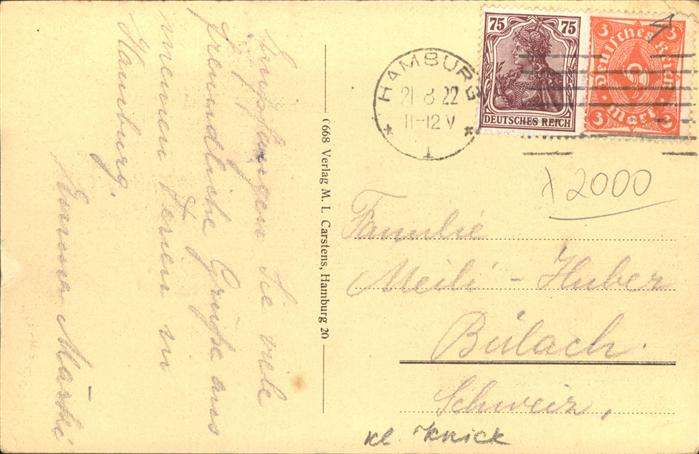 Empfangen Sie viele
freundliche Grüße aus
meinen Ferien in
Hamburg.
Emma
6668 Verlag M. L. Carstens, Hamburg 20
HAMBURG
21.8.22
11-12 V
* 1 *
75 75
DEUTSCHES REICH
Deutsches Reich
3 3
3 3
Mark
λ 2000
Familie
Meili - Huber
Bülach.
Schweiz.
kl. Knick